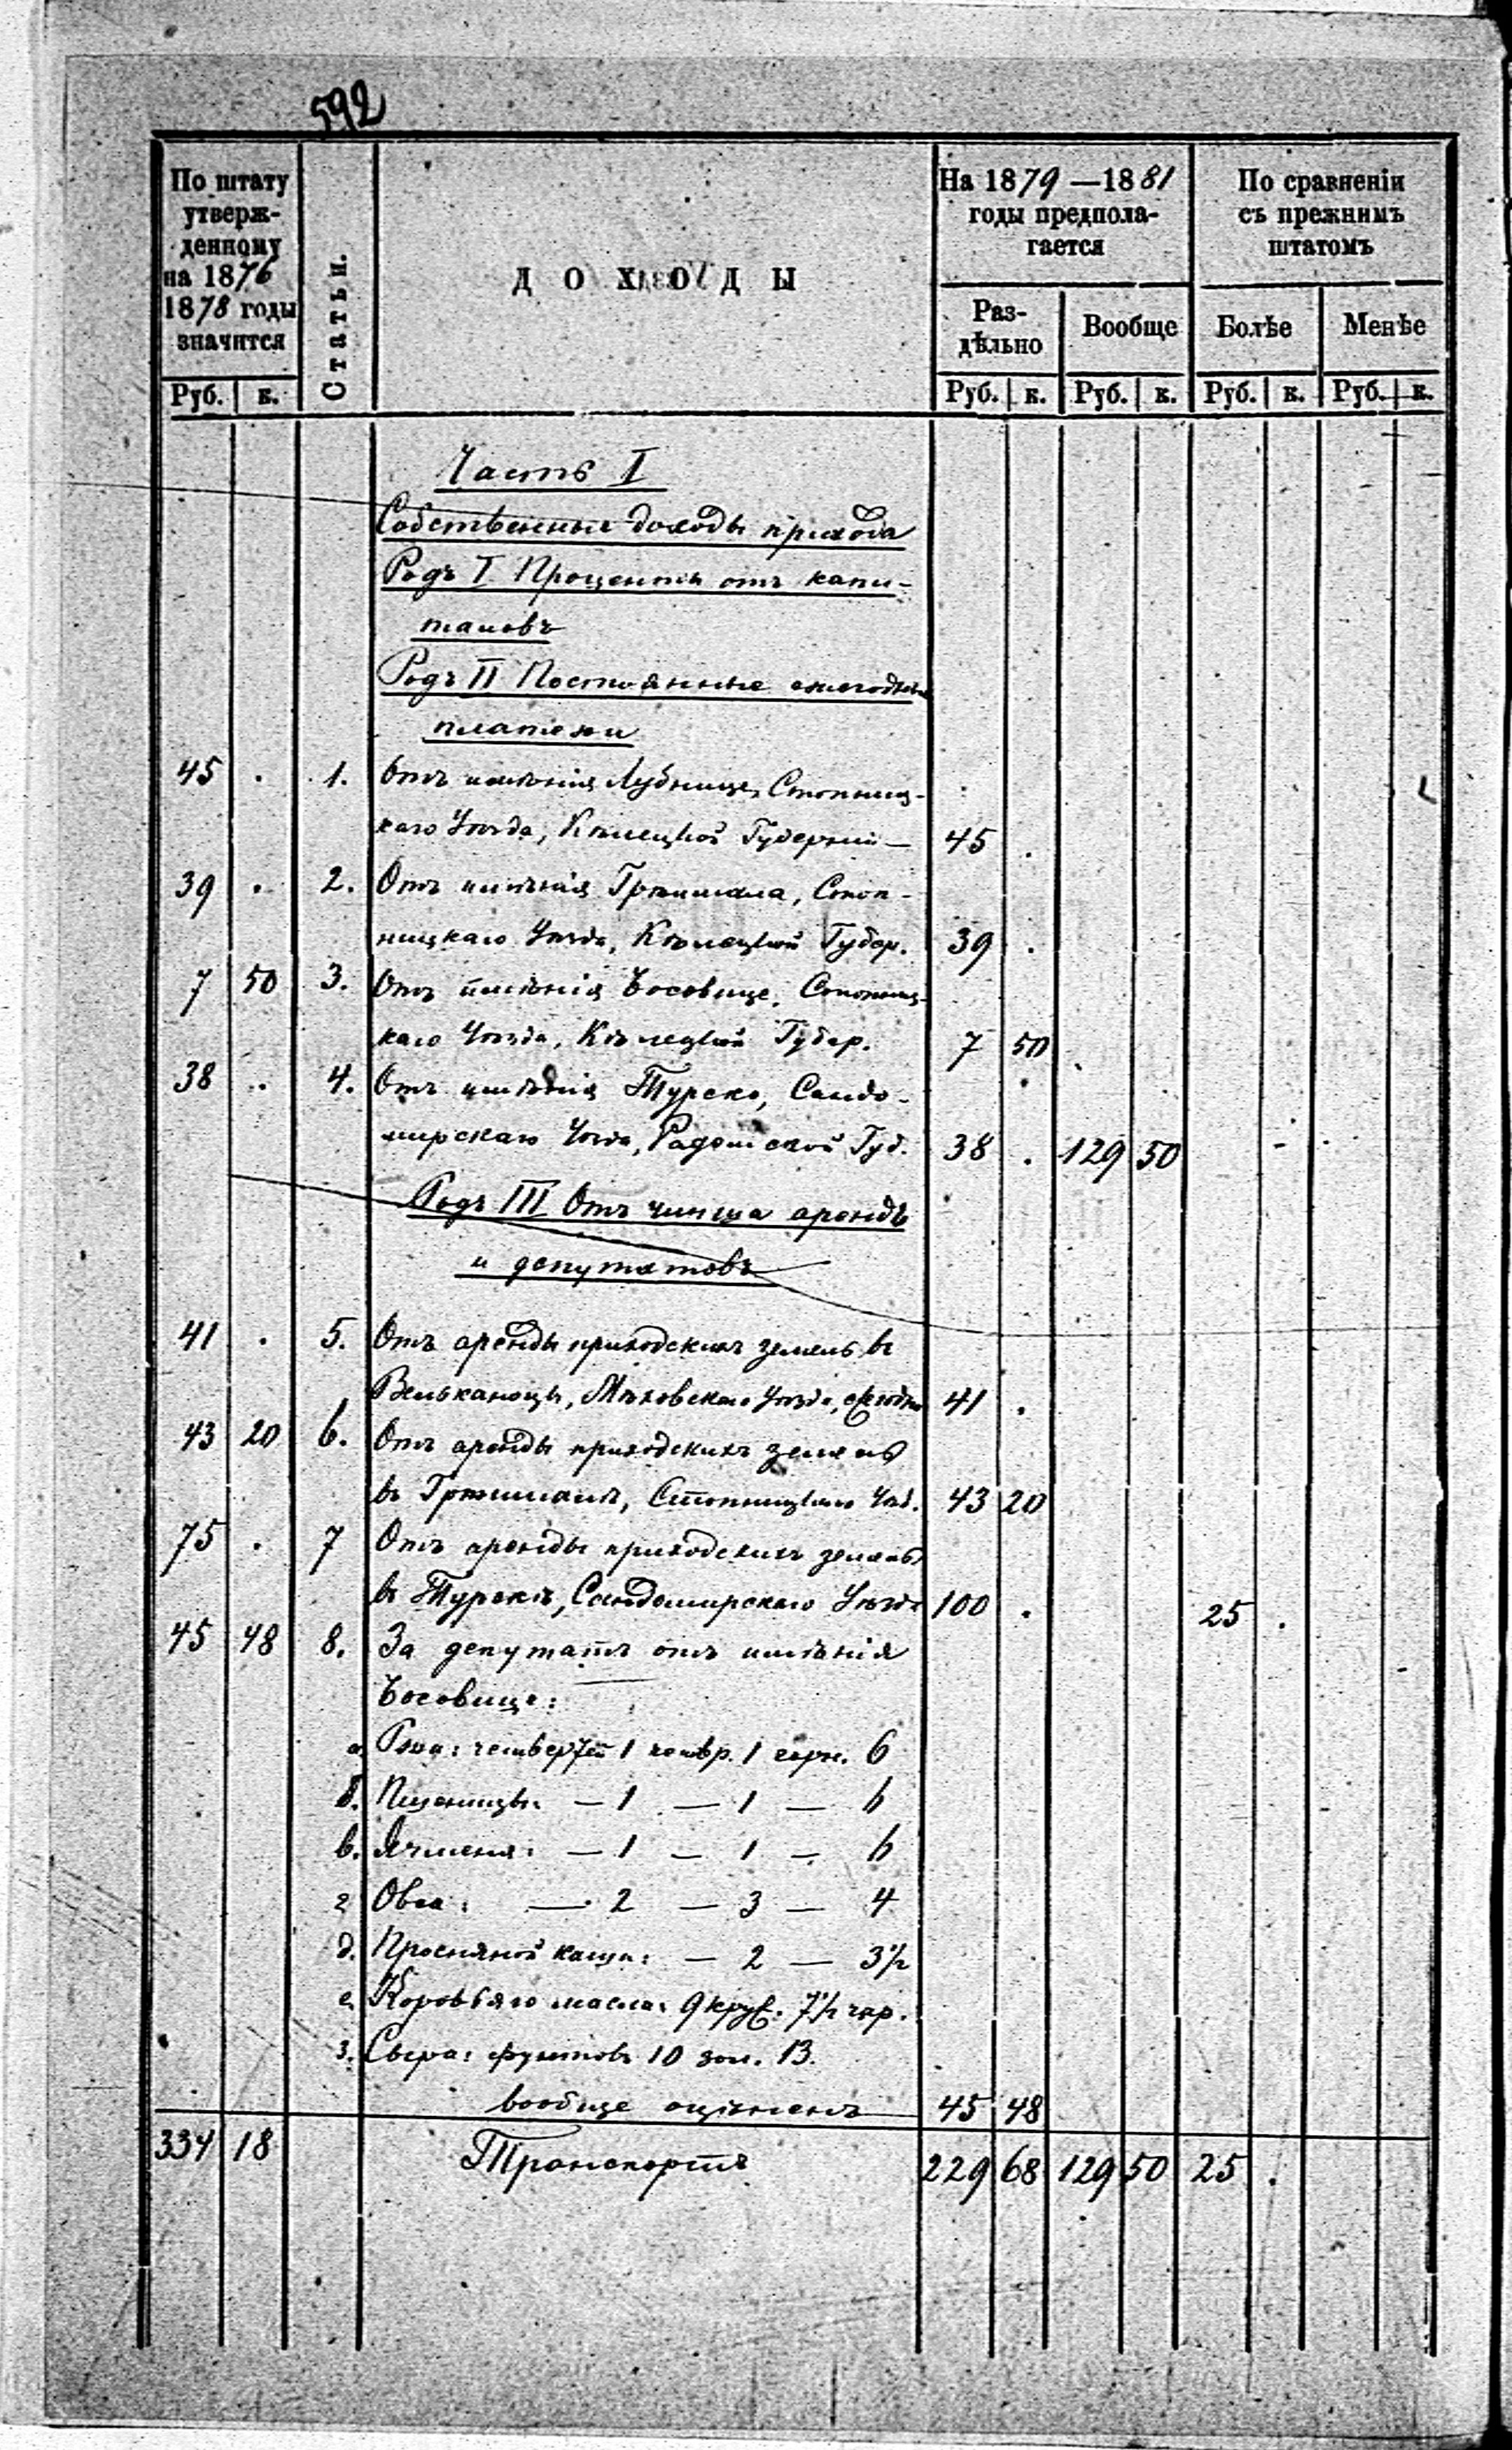 592
По штату утверж-денному на 1876 1878 годы значится
Статьи.
ДОХОДЫ
На 1879—1881 годы предпола-гается
По сравненiи съ прежнимъ штатомъ
Раз-дѣльно
Вообще
Болѣе
Менѣе
Руб. к. Руб. к. Руб. к. Руб. к. Руб. к.
Часть I
Собственные доходы прихода
Родъ I Проценты отъ капи-
таловъ
Родъ II Постоянные ежегодные
платежи
45 . 1. Отъ имѣнiя Лубнице, Стопниц-
каго Уѣзда, Кѣлецкой Губернiи — 45 .
39 . 2. Отъ имѣнiя Гржимала, Стоп-
ницкаго Уѣзда, Кѣлецкой Губер. 39 .
7 50 3. Отъ имѣнiя Босовице, Стопниц-
каго Уѣзда, Кѣлецкой Губер. 7 50
38 .. 4. Отъ имѣнiя Турско, Сандо-
мирскаго Уѣзда, Радомской Губ. 38 . 129 50
Родъ III Отъ чинша арендъ
и депутатовъ
41 . 5. Отъ аренды приходскихъ земель въ
Вельканоцы, Мѣховскаго Уѣзда, 41 .
43 20 6. Отъ аренды приходскихъ земель
въ Гржималѣ, Стопницкаго Уѣз. 43 20
75 . 7 Отъ аренды приходскихъ земель
въ Турскѣ, Сандомирскаго Уѣзда 100 . 25 .
45 48 8. За депутатъ отъ имѣнiя
Босовице:
а. Ржи: четвертей 1 четвр. 1 гарн. 6
б. Пшеницы: — 1 — 1 — 6
в. Ячменя: — 1 — 1 — 6
г Овса: — 2 — 3 — 4
д. Просяной каши: — 2 — 3½
е Коровьяго масла: 9 круж. 7½ чар.
з. Сыра: фунтовъ 10 зол. 13.
вообще оцѣненъ 45 48
334 18 Транспортъ 229 68 129 50 25 .